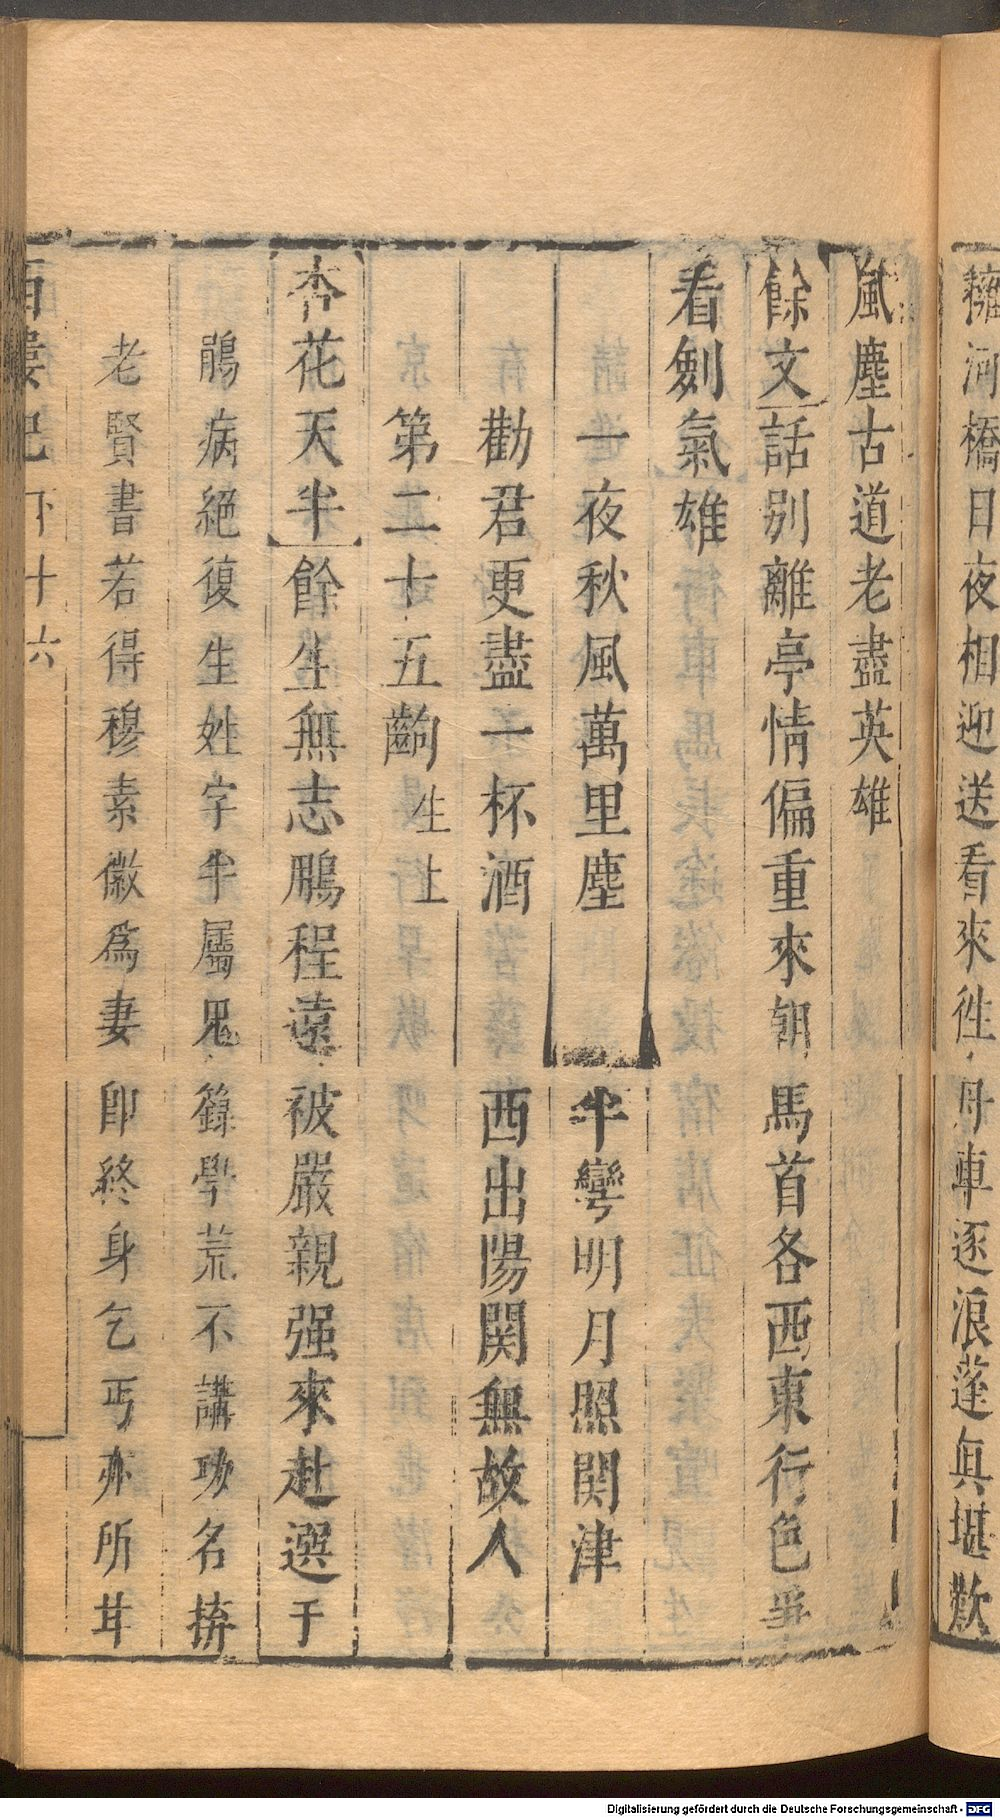 擁河橋日夜相迎送看來徃舟車逐浪蓬真堪歎
風塵古道老盡英雄
餘文話别離亭情偏重來朝馬首各西東行色爭
看劍氣雄
一夜秋風萬里塵 半彎明月照関津
勸君更盡一杯酒 西出陽関無故人
第二十五齣 生上
杏花天半餘生無志鵬程遠被嚴親强來赴選于
鵑病絕復生姓字半屬鬼籙學荒不講功名擠
老賢書若得穆素徽爲妻卽終身乞丐亦所甘
西樓記 下 十六
Digitalisierung gefördert durch die Deutsche Forschungsgemeinschaft - DFG